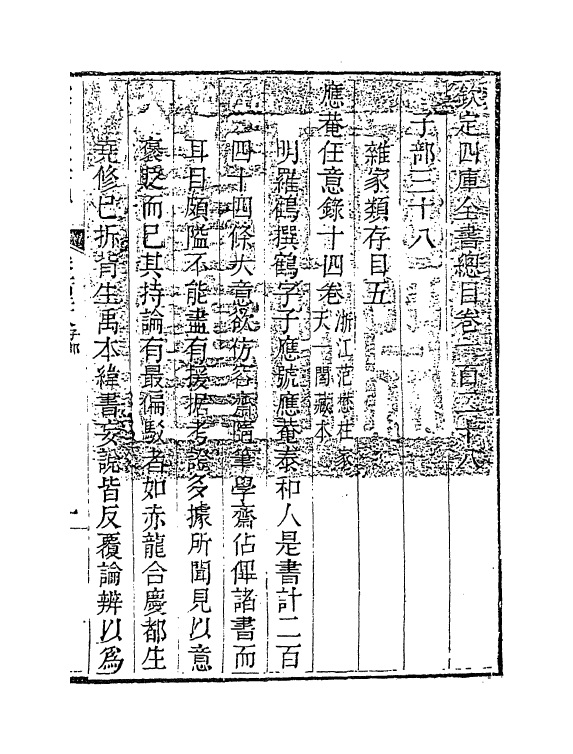 欽定四庫全書總目卷一百二十八
子部三十八
雜家類存目五
應菴任意錄十四卷浙江范懋柱家天一閣藏本
明羅鶴撰鶴字子應號應菴泰和人是書計二百
四十四條大意欲仿容齋隨筆學齋佔俾諸書而
耳目頗隘不能盡有援据考證多據所聞見以意
褒貶而已其持論有最偏駁者如赤龍合慶都生
堯修已拆背生禹本緯書妄說皆反覆論辨以為